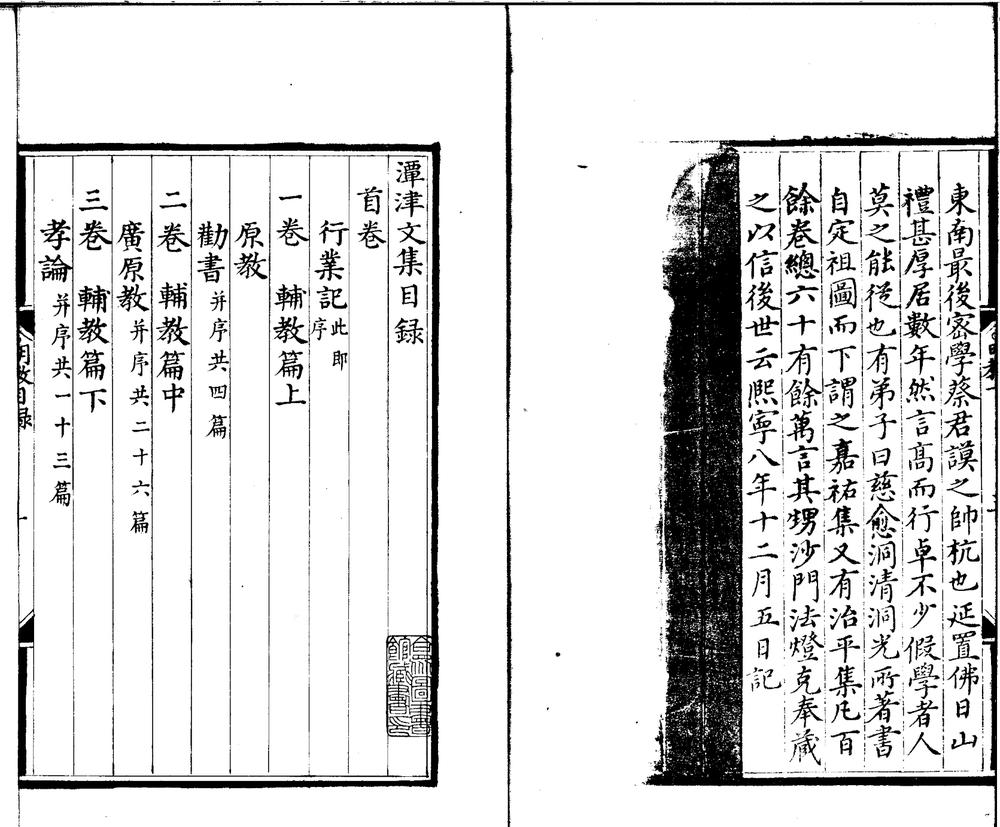 東南最後密學蔡君謨之帥杭也延置佛日山
禮甚厚居數年然言髙而行卓不少假學者人
莫之能從也有弟子曰慈愈洞清洞光所著書
自定祖圖而下謂之嘉祐集又有治平集凡百
餘卷總六十有餘萬言其甥沙門法燈克奉藏
之以信後世云熙寧八年十二月五日記
潭津文集目録
首卷
行業記此即序
一卷 輔教篇上
原教
勸書并序共四篇
二卷 輔教篇中
廣原教并序共二十六篇
三卷 輔教篇下
孝論并序共一十三篇
目録